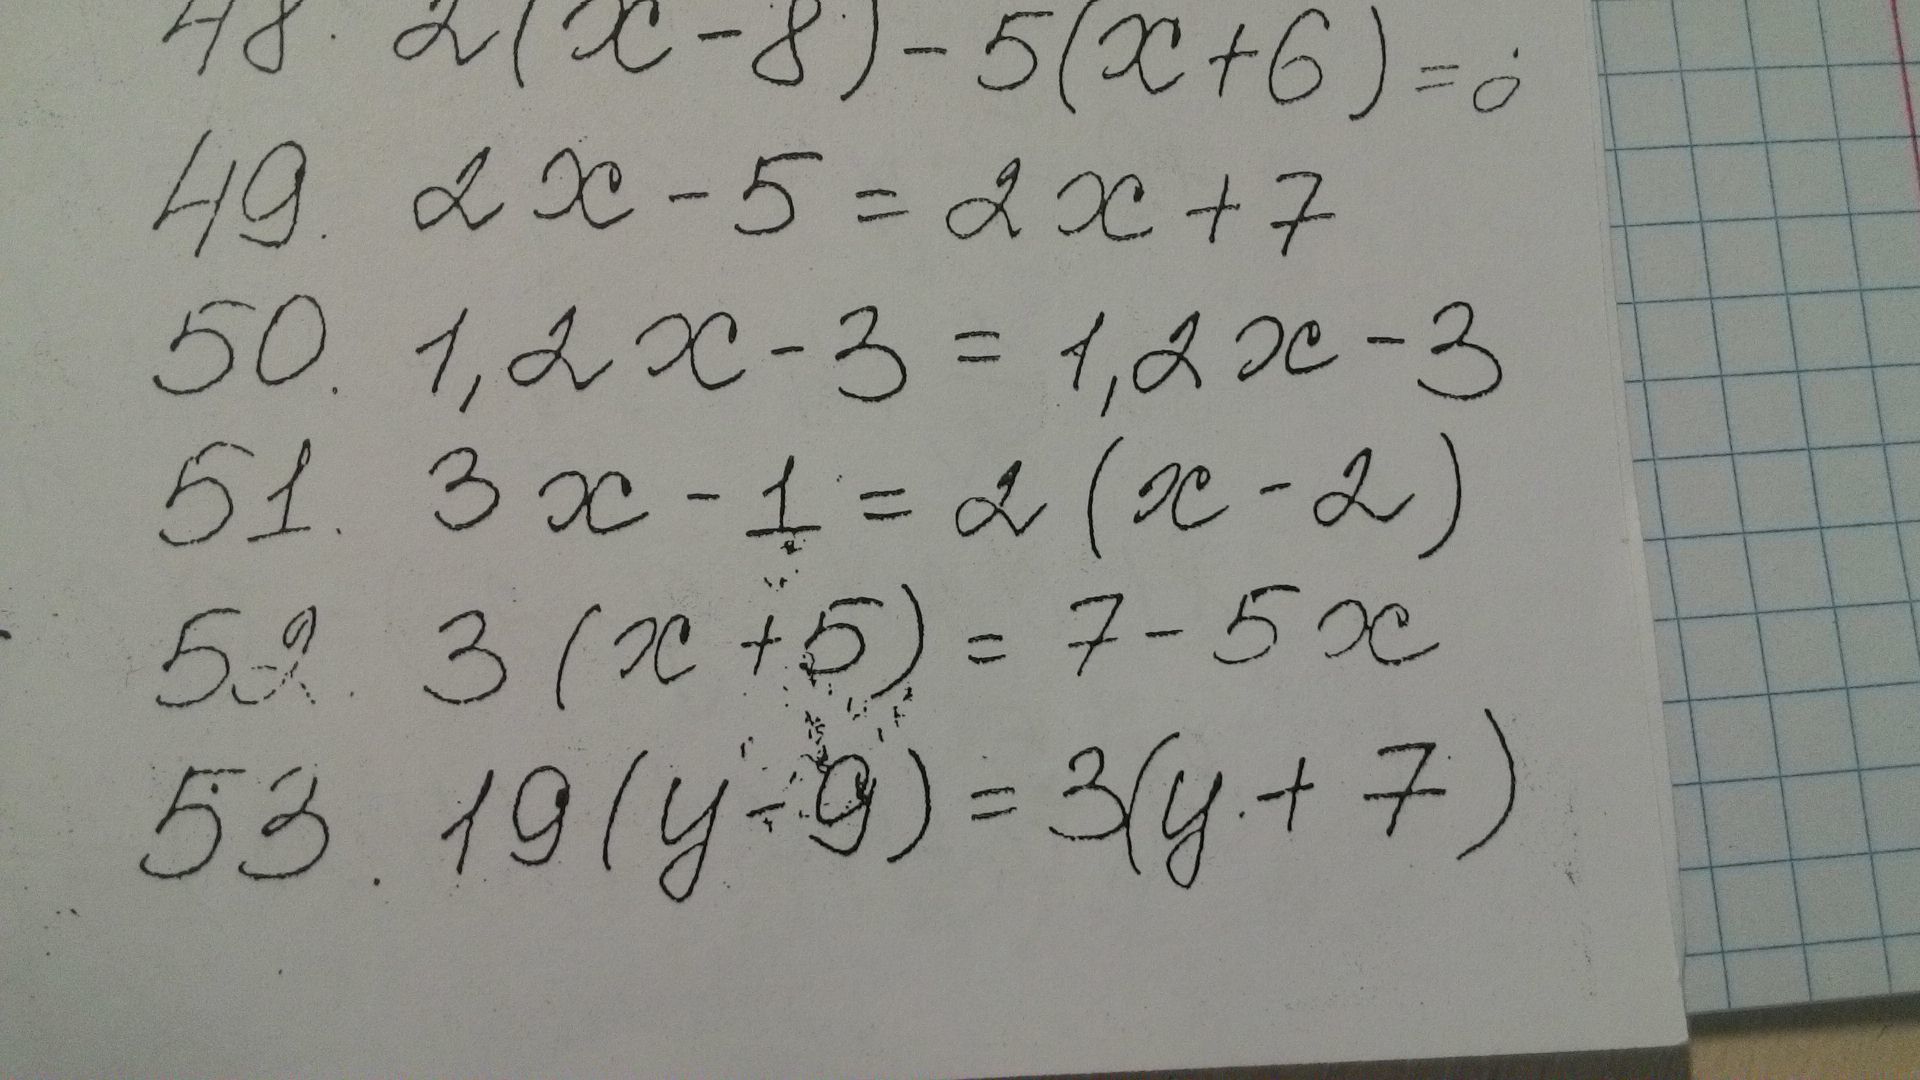 48. 2(x-8)-5(x+6)=0
49. 2x-5=2x+7
50. 1,2x-3=1,2x-3
51. 3x-1=2(x-2)
52. 3(x+5)=7-5x
53. 19(y-9)=3(y+7)